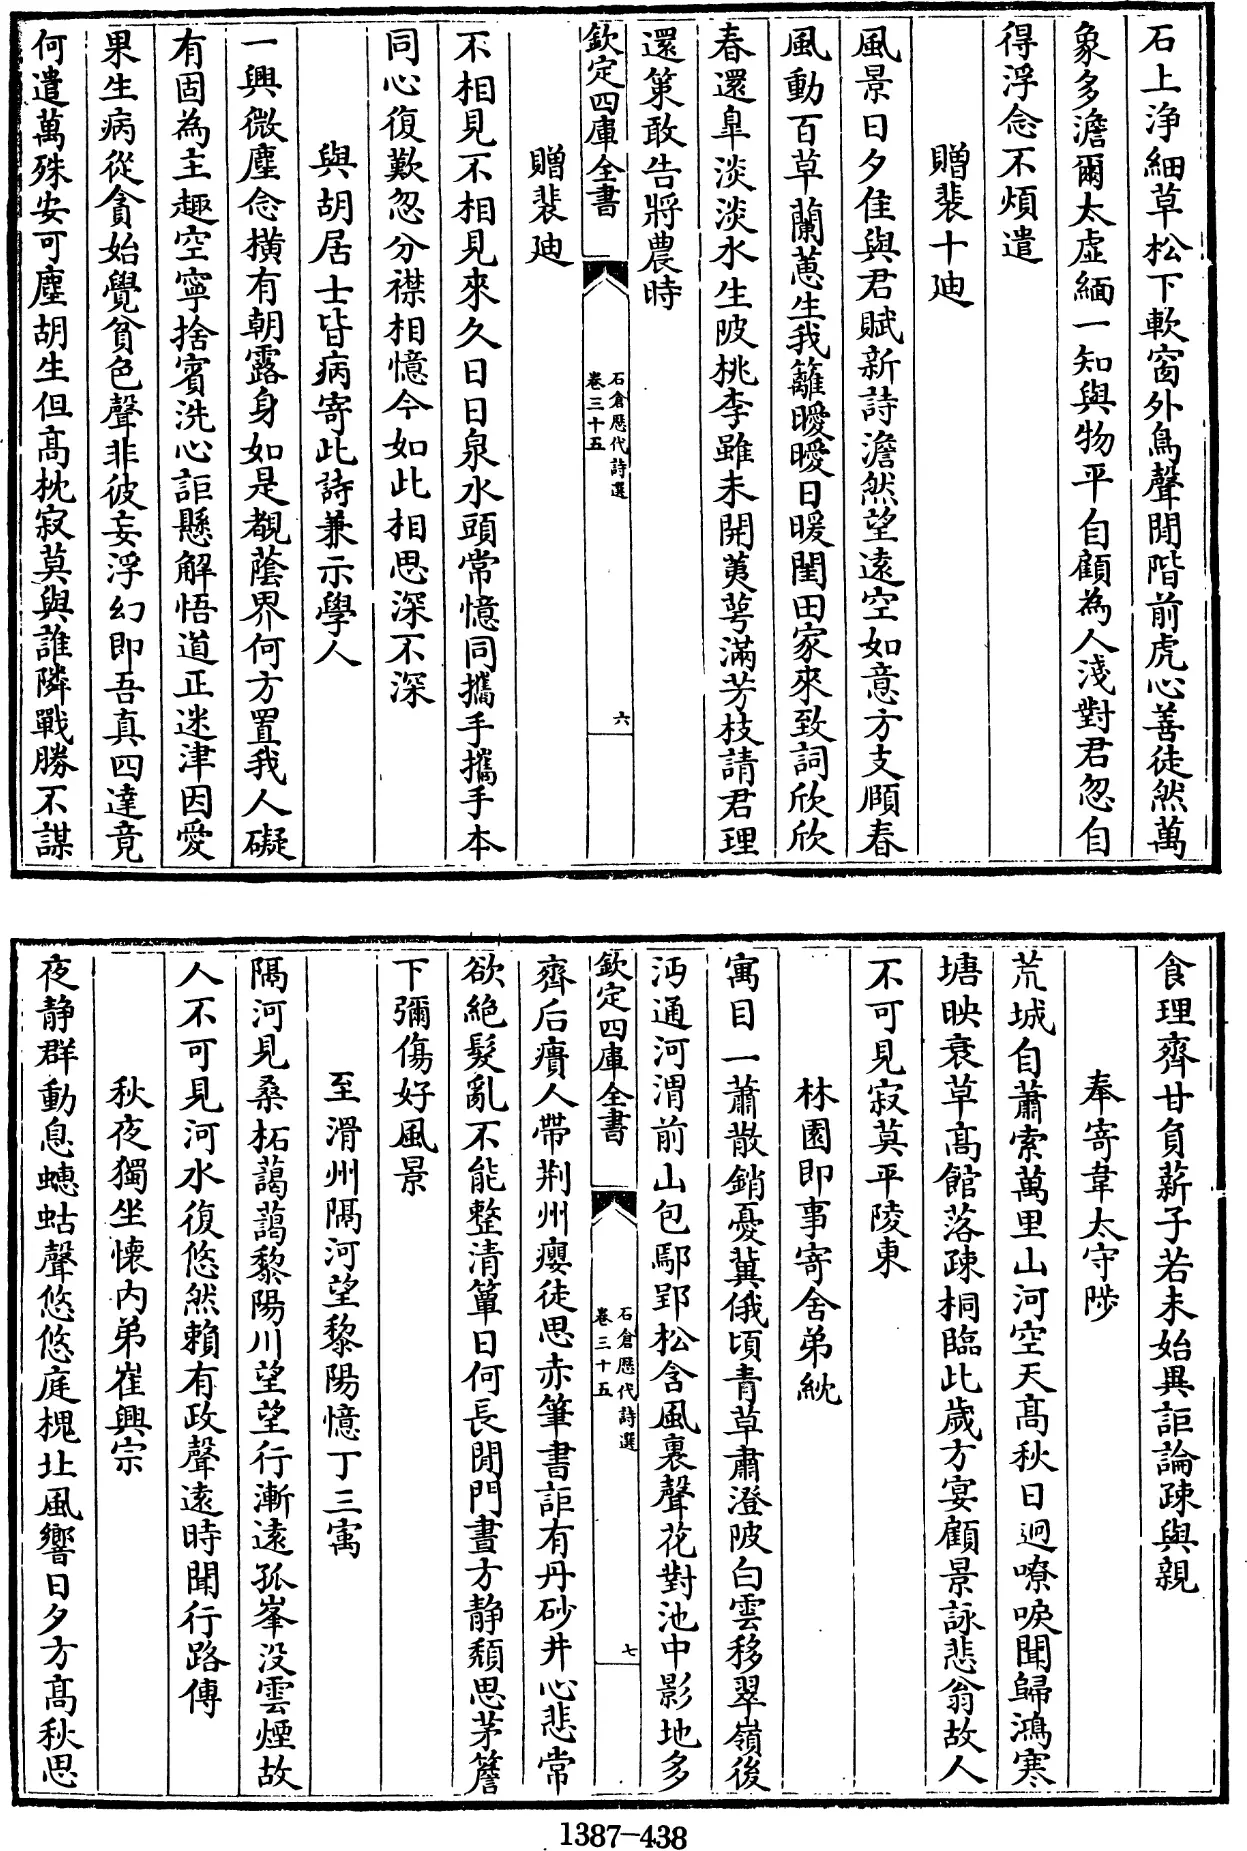 石上淨細草松下軟窗外鳥聲閒階前虎心善徒然萬
象多澹爾太虛緬一知與物平自顧為人淺對君忽自
得浮念不煩遣
贈裴十迪
風景日夕佳與君賦新詩澹然望遠空如意方支頤春
風動百草蘭蕙生我籬曖曖日暖閨田家來致詞欣欣
春還臯淡淡水生陂桃李雖未開荑萼滿芳枝請君理
還策敢告將農時
欽定四庫全書
石倉歷代詩選
卷三十五
六
贈裴迪
不相見不相見來久日日泉水頭常憶同攜手攜手本
同心復歎忽分襟相憶今如此相思深不深
與胡居士皆病寄此詩兼示學人
一興微塵念橫有朝露身如是覩蔭界何方置我人礙
有固為主趣空寧捨賓洗心詎懸解悟道正迷津因愛
果生病從貪始覺貧色聲非彼妄浮幻即吾真四達竟
何遣萬殊安可塵胡生但高枕寂莫與誰隣戰勝不謀
食理齊甘負薪子若未始異詎論疎與親
奉寄韋太守陟
荒城自蕭索萬里山河空天高秋日迥嘹唳聞歸鴻寒
塘映衰草高館落疎桐臨此歲方宴顧景詠悲翁故人
不可見寂莫平陵東
林園即事寄舍弟紞
寓目一蕭散銷憂冀俄頃青草肅澄陂白雲移翠嶺後
沔通河渭前山包鄢郢松含風裏聲花對池中影地多
欽定四庫全書
石倉歷代詩選
卷三十五
七
齊后㿉人帶荆州癭徒思赤筆書詎有丹砂井心悲常
欲絕髮亂不能整清簟日何長閒門晝方靜頹思茅簷
下彌傷好風景
至滑州隔河望黎陽憶丁三寓
隔河見桑柘藹藹黎陽川望望行漸遠孤峯没雲煙故
人不可見河水復悠然賴有政聲遠時聞行路傳
秋夜獨坐懷内弟崔興宗
夜靜群動息蟪蛄聲悠悠庭槐北風響日夕方高秋思
1387-438